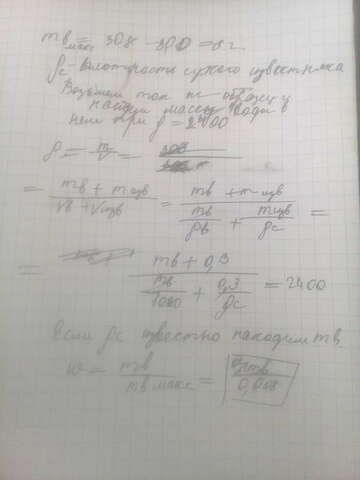 mв макс = 308 - 300 = 8 г.
ρс - плотность сухого известняка
Возьмем тот же образец и
найдем массу воды в
нем при ρ = 2400
ρ = m/V =
= (mв + mизв)/(Vв + Vизв) = (mв + mизв)/(mв/ρв + mизв/ρс) =
= (mв + 0,3)/(mв/1000 + 0,3/ρс) = 2400
Если ρс известно находим mв.
w = mв/mв макс = mв/0,008